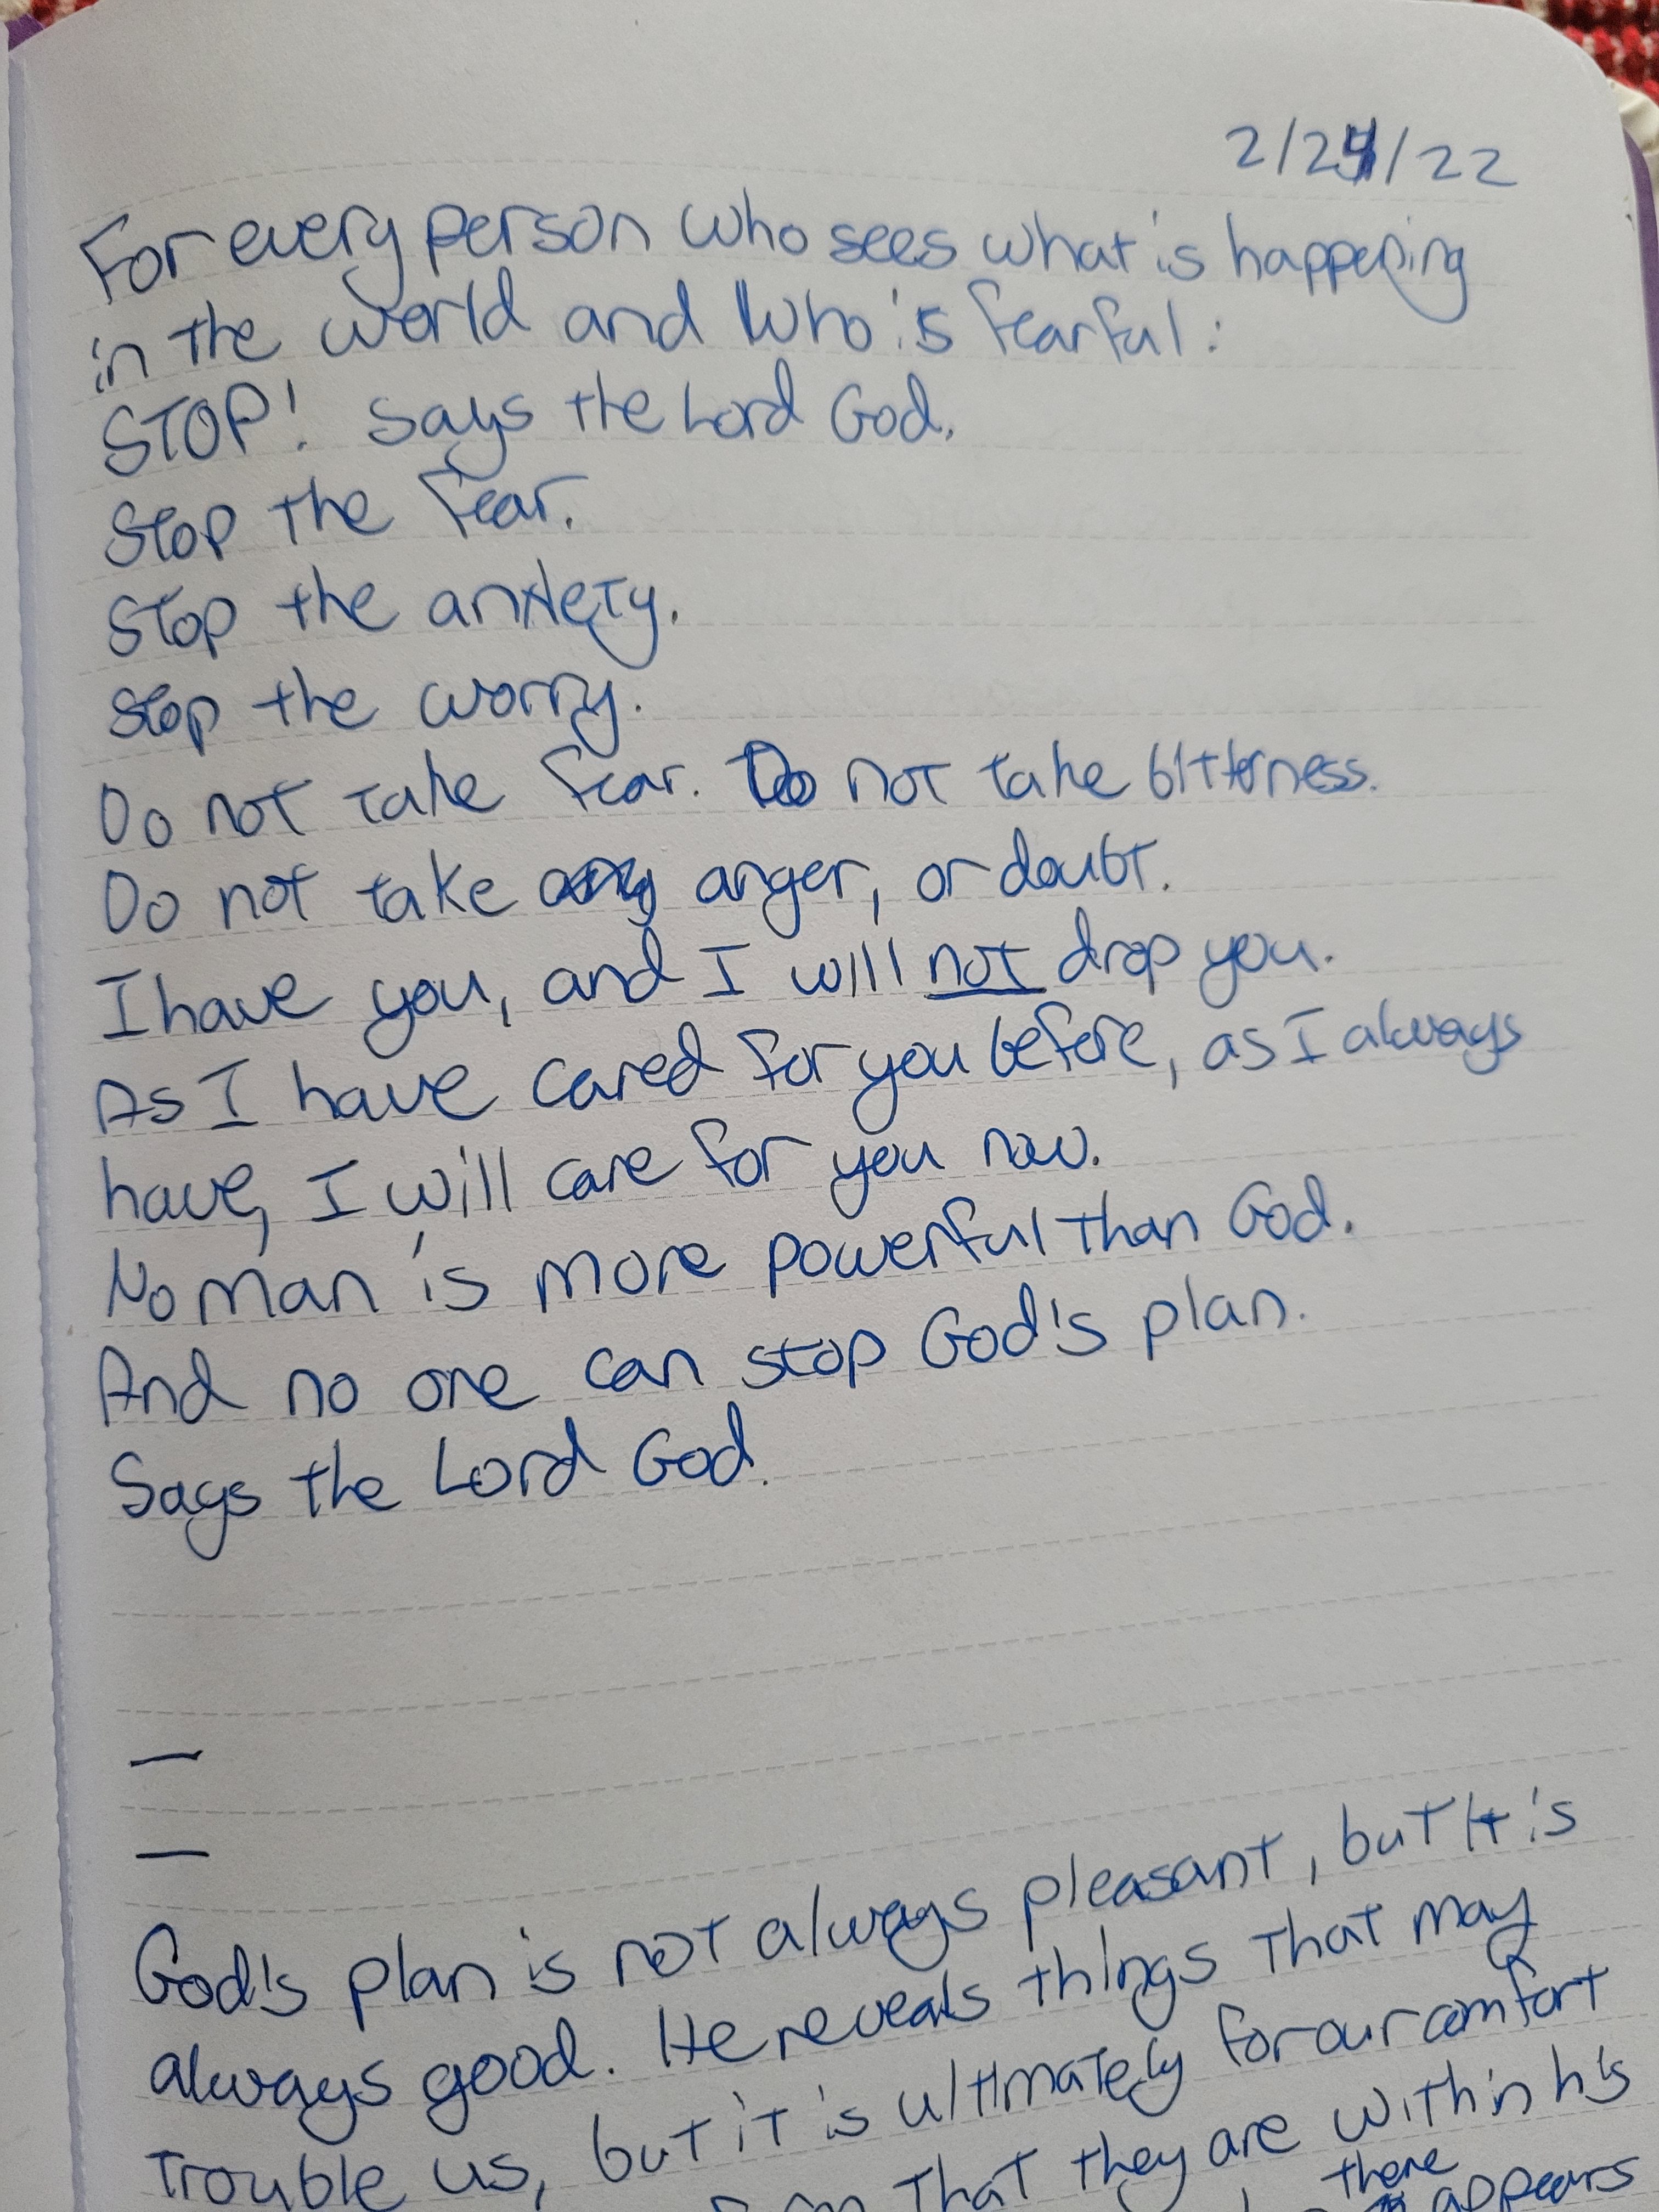 2/24/22
For every person who sees what is happening
in the world and who is fearful:
STOP! says the Lord God.
Stop the fear.
Stop the anxiety.
Stop the worry.
Do not take fear. Do not take bitterness.
Do not take anger, or doubt.
I have you, and I will not drop you.
As I have cared for you before, as I always
have, I will care for you now.
No man is more powerful than God.
And no one can stop God's plan.
Says the Lord God.
—
—
God's plan is not always pleasant, but it is
always good. He reveals things that may
trouble us, but it is ultimately for our comfort
that they are within his
there
appears